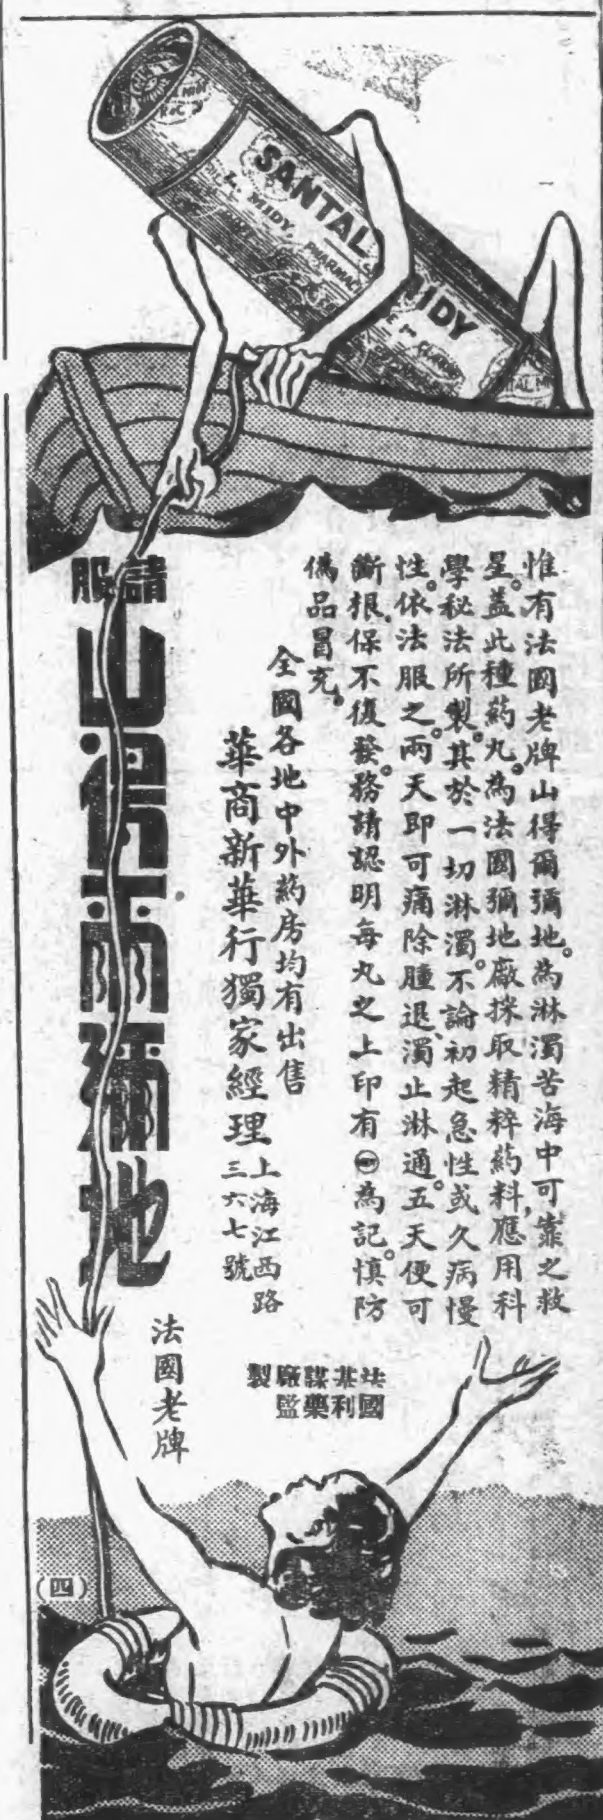 SANTAL MIDY
L. MIDY, PHARMAC
惟有法國老牌山得爾彌地。為淋濁苦海中可靠之救
星。蓋此種葯丸。為法國彌地廠採取精粹葯料應用科
學秘法所製。其於一切淋濁。不論初起急性或久病慢
性。依法服之。兩天即可痛除腫退、濁止淋通。五天便可
斷根、保不復發。務請認明每丸之上印有㊞為記。慎防
偽品冒充。
全國各地中外葯房均有出售
華商新華行獨家經理
上海江西路
三六七號
請服
山得爾彌地
法國老牌
法國
基利
謀藥
廠監
製
(四)